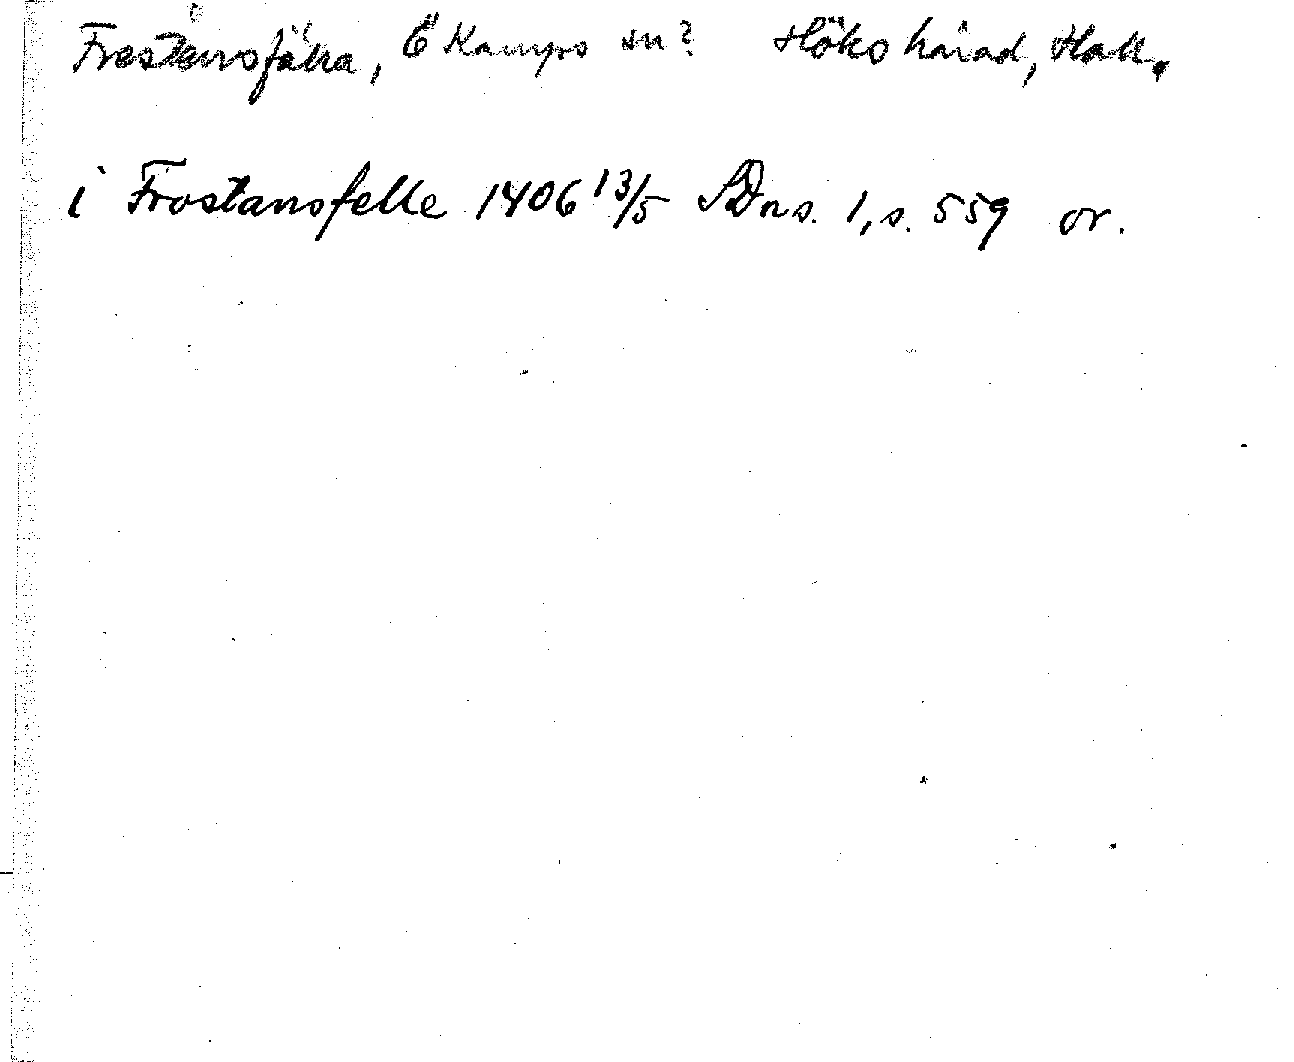 Frestensfälla, Ö Karups sn? Höks härad, Hall.
i Frostansfelle 1406 13/5 SDns. 1, s. 559 or.